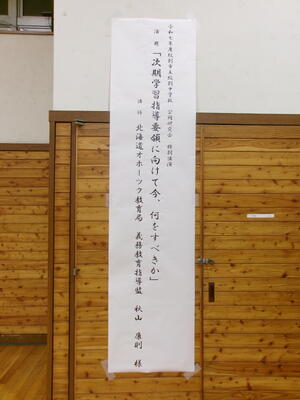 令和七年度紋別市立紋別中学校 公開研究会 特別講演
演題「次期学習指導要領に向けて今、何をすべきか」
講師 北海道オホーツク教育局 義務教育指導監 秋山 康則 様